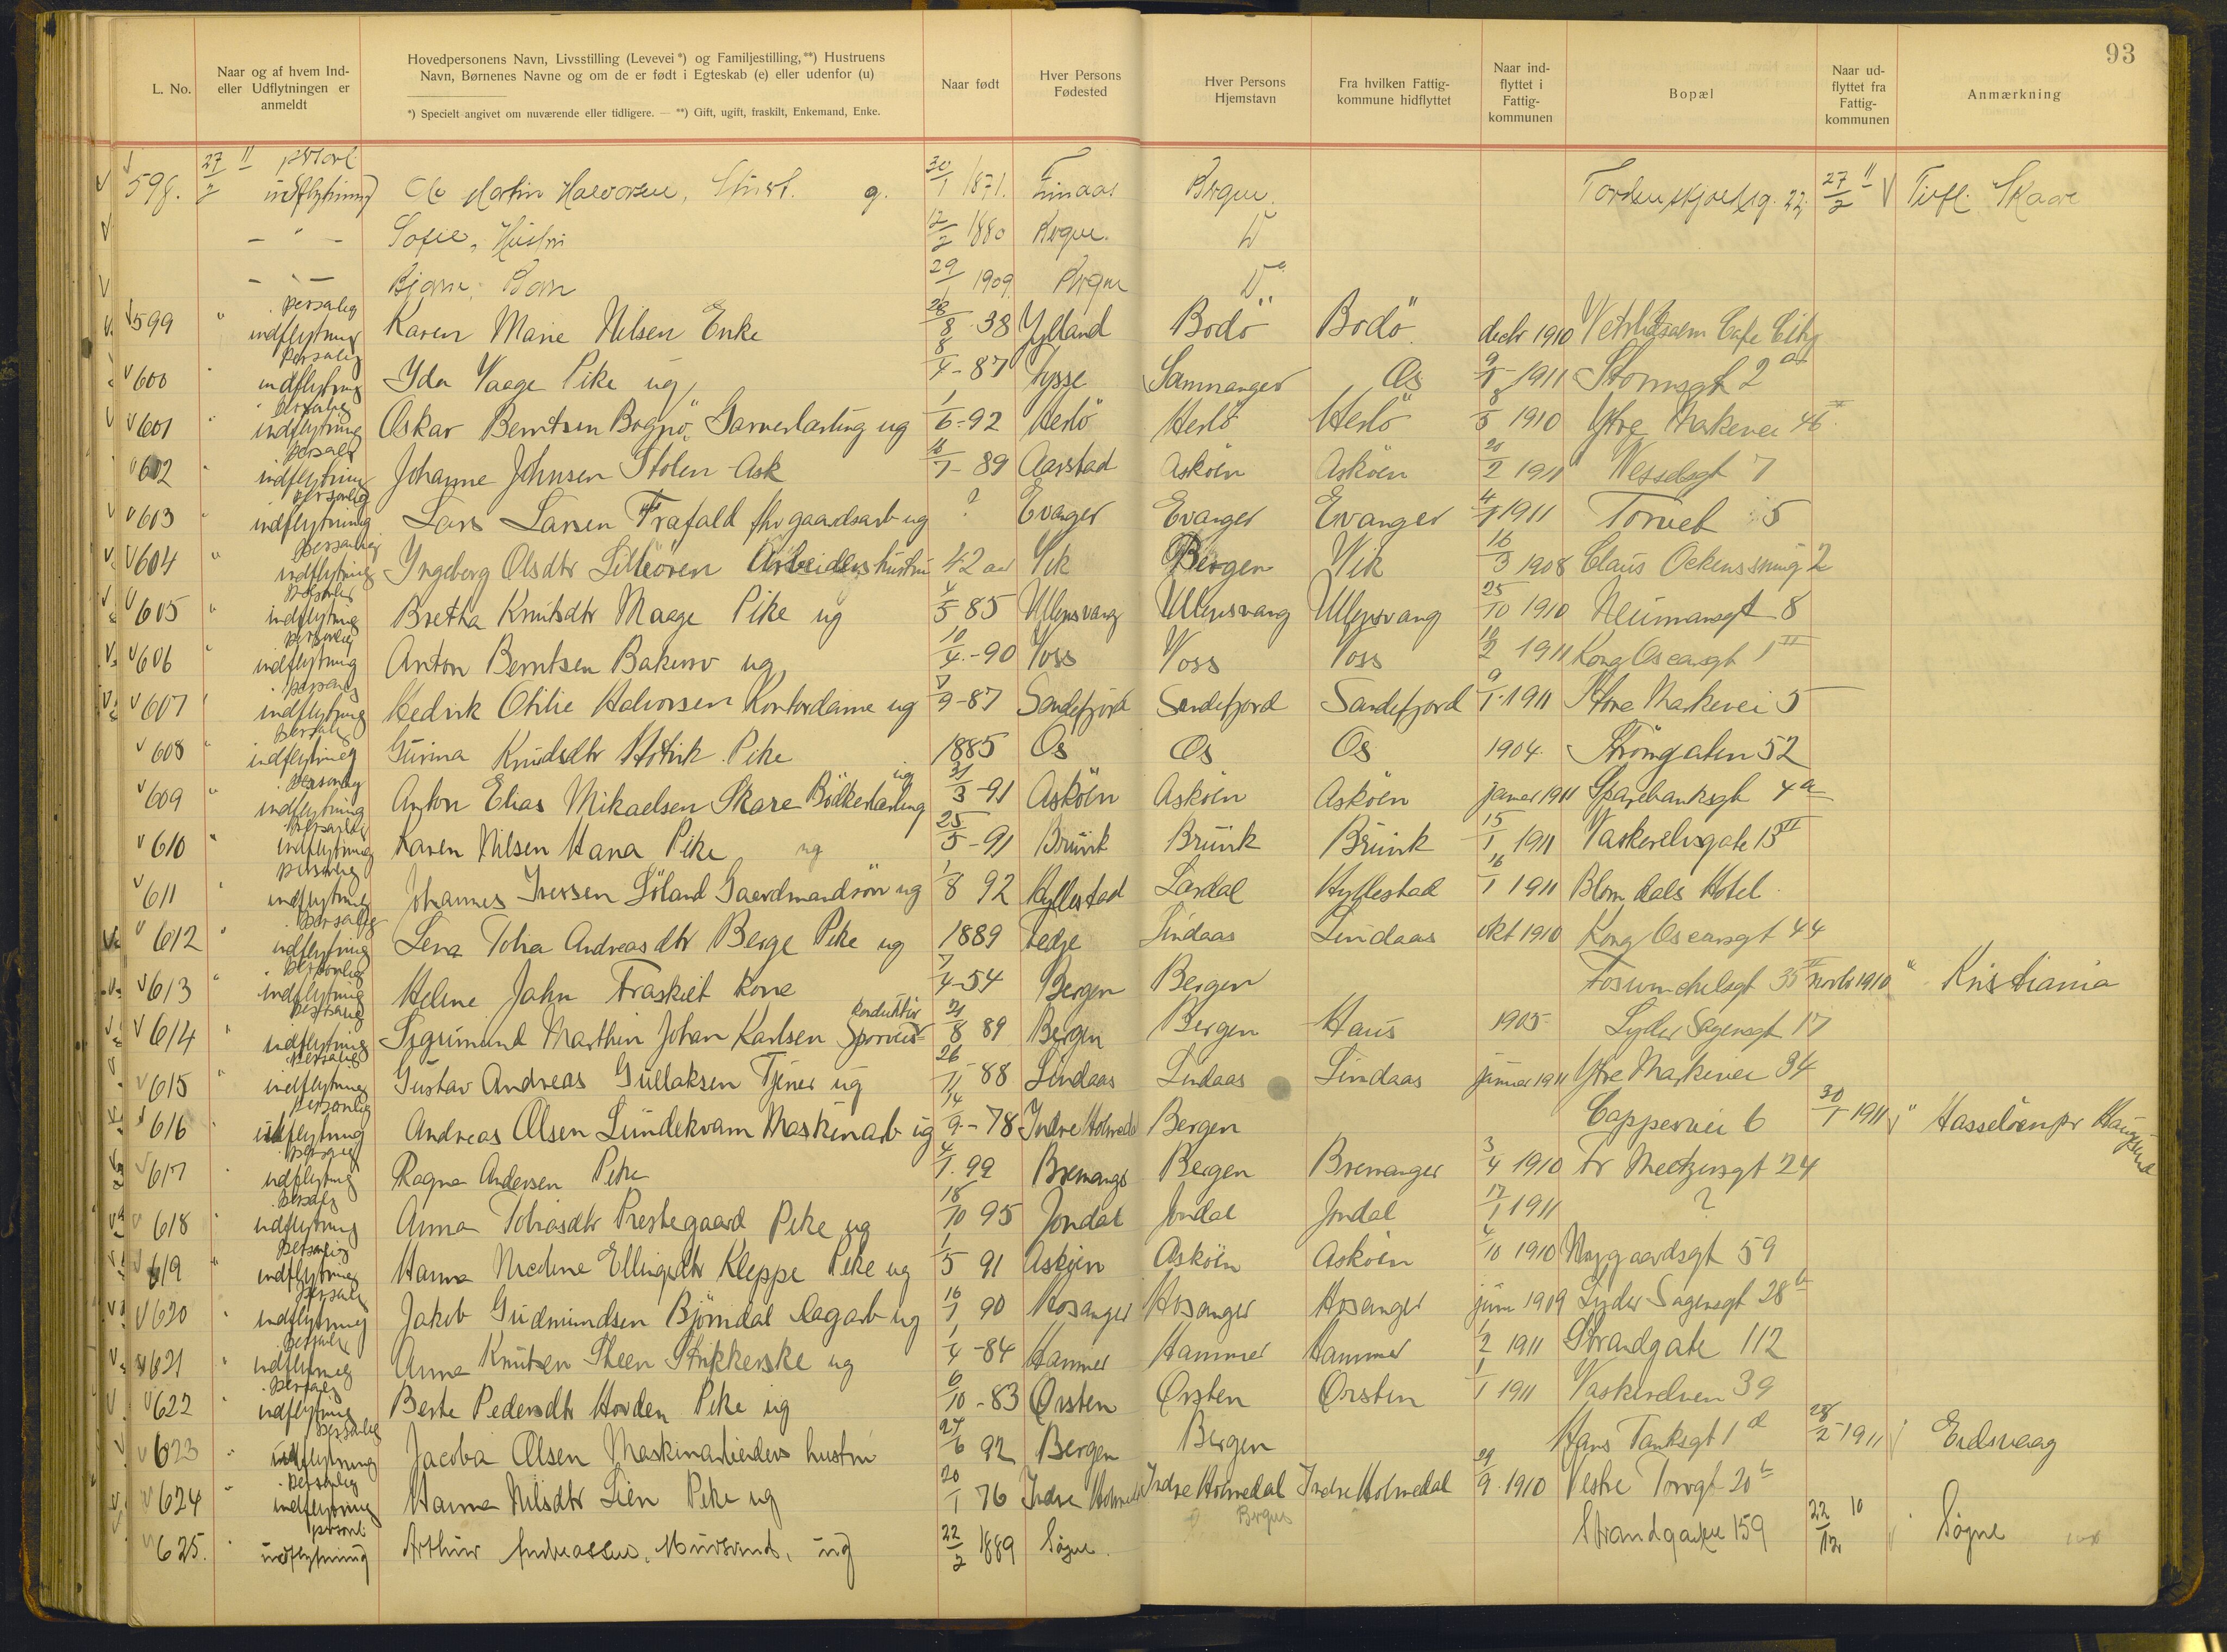 93
L. No.
Naar og af hvem Ind- eller Udflytningen er anmeldt
Hovedpersonens Navn, Livsstilling (Levevei*) og Familjestilling,**) Hustruens Navn, Børnenes Navne og om de er født i Egteskab (e) eller udenfor (u)
*) Specielt angivet om nuværende eller tidligere. — **) Gift, ugift, fraskilt, Enkemand, Enke.
Naar født
Hver Persons Fødested
Hver Persons Hjemstavn
Fra hvilken Fattigkommune hidflyttet
Naar indflyttet i Fattigkommunen
Bopæl
Naar udflyttet fra Fattigkommunen
Anmærkning
598. 27/2 11 personl. udflytning Martin Halvorsen, g. 30/1 1871. Finaas Bergen. Tordenskjoldsg. 22 27/2 11 Tilfl. Skaare
— " — Sofie, Hustru 12/2 1880 Bergen. D
— " — Bjarne, Barn 29/1 1909 Bergen D
599 " personlig indflytning Karen Marie Nilsen Enke 28/8 38 Jylland Bodö Bodö decbr 1910 Vetrlidsalm Cafe City
600 " personlig indflytning Yda Vaage Pike ug 8/4 - 87 Tysse Samnanger Os 9/1 1911 Stormsgt 2a
601 " personlig indflytning Oskar Berntsen Bognö, Garverlærling ug 1/6 - 92 Herlö Herlö Herlö 8/5 1910 Ytre Markevei 46
602 " personlig indflytning Johanne Johnsen Stolen Ask 16/7 - 89 Aarstad Asköen Asköen 21/2 1911 Wesselsgt 7
603 " personlig indflytning Lars Larsen Trafald fhv gaardsarb ug ? Evanger Evanger Evanger 4/1 1911 Torvet 5
604 " personlig indflytning Ingeborg Olsdtr Lilleören Arbeiders hustru 42 aar Vik Bergen Vik 16/3 1908 Claus Ockenssmug 2
605 " personlig indflytning Bretha Knutsdtr Maage Pike ug 4/5 85 Ullensvang Ullensvang Ullensvang 25/10 1910 Neumansgt 8
606 " personlig indflytning Anton Berntsen Bakersv ug 10/4 - 90 Voss Voss Voss 10/2 1911 Kong Oscarsgt 1 II
607 " personlig indflytning Hedvik Otilie Halvorsen Kontordame ug 7/9 - 87 Sandefjord Sandefjord Sandefjord 9/1 1911 Store Markevei 5
608 " personlig indflytning Gurina Knudsdtr Pike 1885 Os Os Os 1904. Strömgaten 52
609 " personlig indflytning Anton Elias Mikaelsen Skare Bödkerlærling ug 31/3 - 91 Asköen Asköen Asköen januar 1911 Sparebanksgt 4a
610 " personlig indflytning Karen Nilsen Hana Pike ug 25/5 - 91 Bruvik Bruvik Bruvik 15/1 1911 Vaskerelvsgate 13 II
611 " personlig indflytning Johannes Iversen Söland Gaardmandsön ug 1/8 92 Hyllestad Lærdal Hyllestad 16/1 1911 Blomdals Hotel
612 " personlig indflytning Lena Tolia Andreasdtr Berge Pike ug 1889 Fedje Lindaas Lindaas okt 1910 Kong Oscarsgt 44
613 " personlig indflytning Helene Jahn Fraskilt Kone 7/4 - 54 Bergen Bergen Fosswinckelsgt 35 novbr 1910 " Kristiania
614 " personlig indflytning Sigmund Marthin Johan Karlsen Sporveiskonduktör 21/8 89 Bergen Bergen Haus 1905 Lyder Sagensgt 17
615 " personlig indflytning Gustav Andreas Gullaksen Tjener ug 26/11 88 Lindaas Lindaas Lindaas januar 1911 Ytre Markevei 34
616 " personlig udflytning Andreas Olsen Lundekvam Maskinarb ug 14/9 - 78 Indre Holmedal Bergen Cappesvei 6 30/1 1911 " Hasselöen pr Haugesund
617 " personlig indflytning Ragna Andersen Pike 4/1 . 92 Bremanger Bergen Bremanger 3/4 1910 Fr Meltzersgt 24
618 " personlig indflytning Anna Tobiasdtr Prestegaard Pike ug 18/10 95 Jondal Jondal Jondal 17/1 1911 ?
619 " personlig indflytning Hanna Nicoline Ellingsdtr Kleppe Pike ug 1/5 91 Asköen Asköen Asköen 4/10 1910 Nygaardsgt 59
620 " personlig indflytning Jakob Gudmundsen Björndal Lagarb ug 16/1 90 Hosanger Hosanger Hosanger juni 1909 Lyder Sagensgt 28b
621 " personlig indflytning Anna Knutsen Steen Strikkerske ug 1/4 - 84 Hammer Hammer Hammer 1/2 1911 Strandgate 112
622 " personlig indflytning Berte Pedersdtr Hovden Pike ug 6/10 - 83 Örsten Örsten Örsten 1/1 1911 Vaskerelven 39
623 " personlig udflytning Jacoba Olsen Maskinarbeiders hustru 27/6 92 Bergen Bergen Hans Tanksgt 1d 28/2 1911 " Eidsvaag
624 " personlig indflytning Hanna Nilsdtr Lien Pike ug 20/1 76 Indre Holmedal Indre Holmedal Indre Holmedal 29/9 1910 Vestre Torvgt 20b
625. " personl. udflytning Arthur Andreassen, Murersvend, ug 22/2 1889 Sogne. Bergen Strandgaten 159 22/12 10 " Sögne